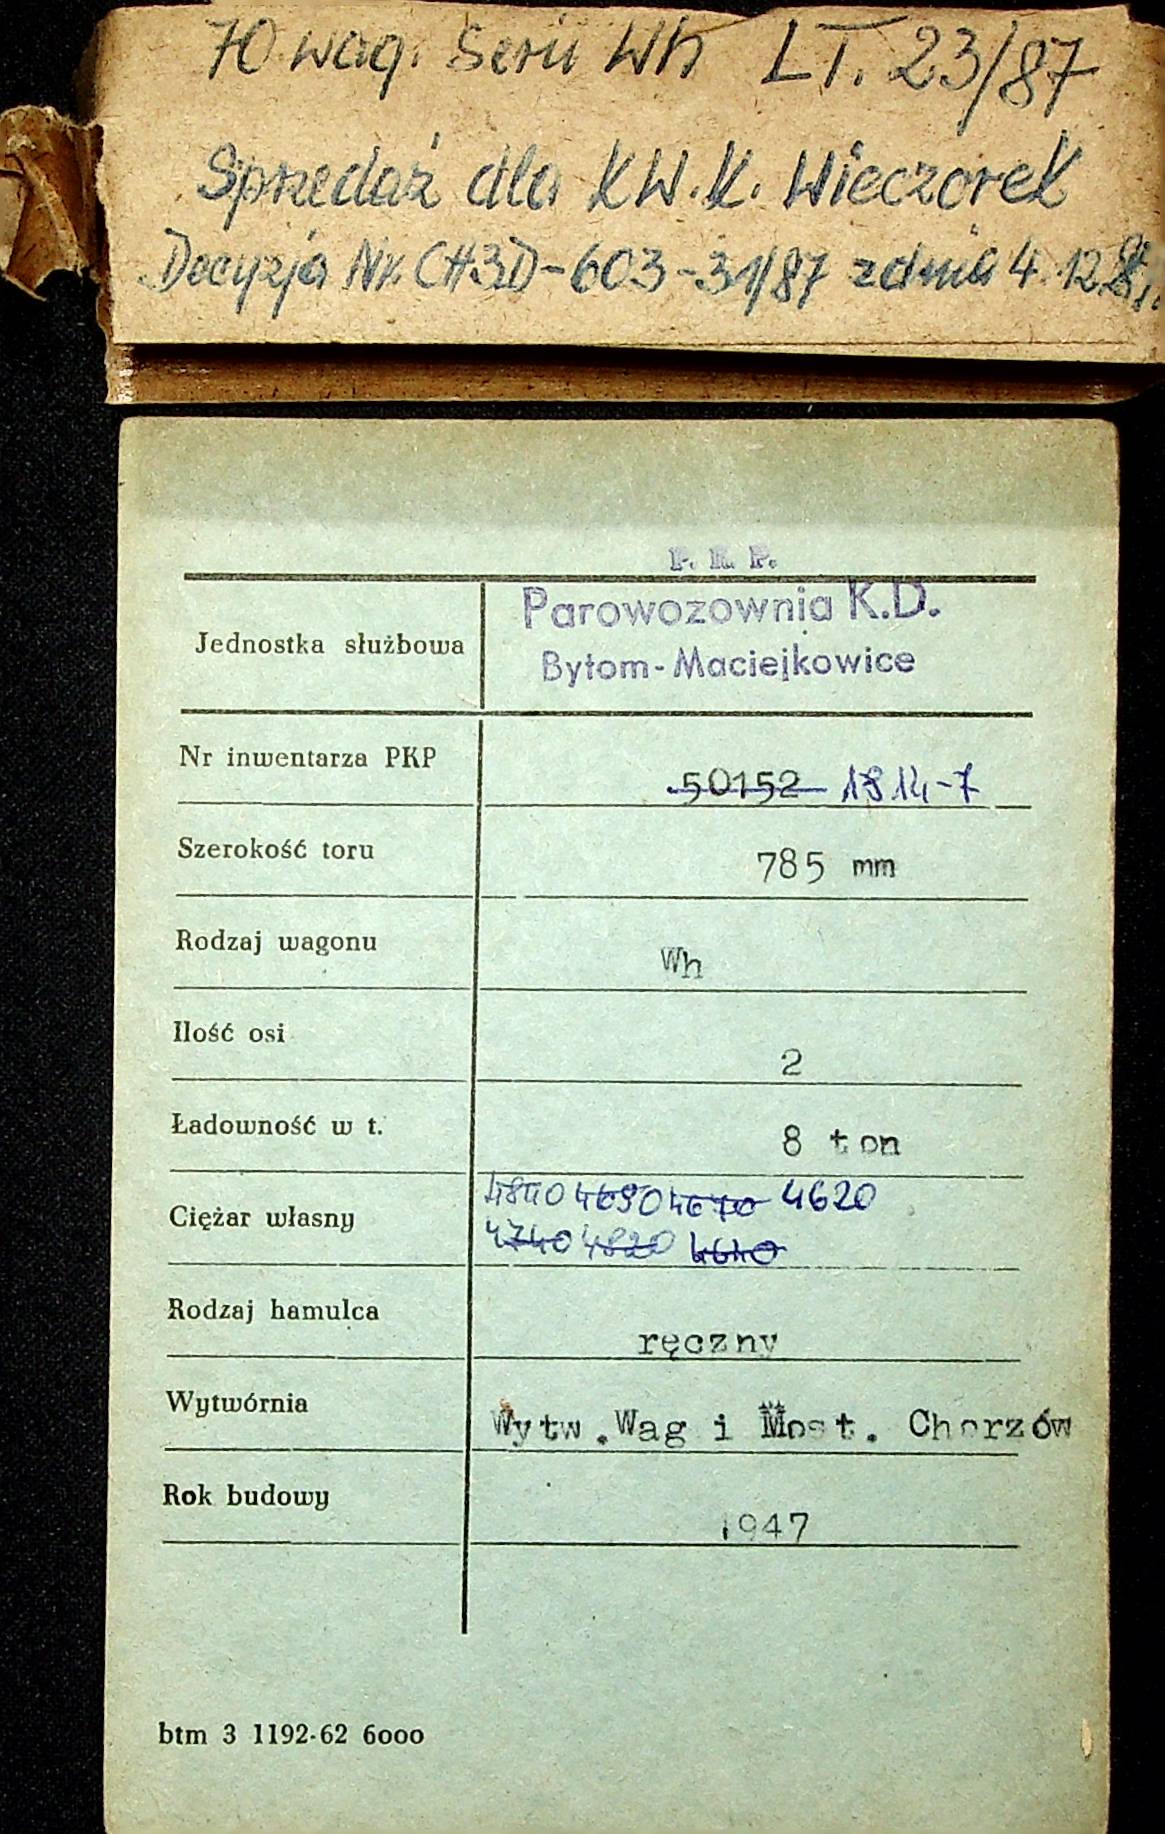 70 wag. Serii Wh LT. 23/87
Sprzedaż dla KW.K. Wieczorek
Decyzja Nr. CH3D-603-31/87 z dnia 4.12.
P. K. P.
Parowozownia K.D.
Jednostka służbowa
Bytom-Maciejkowice
Nr inwentarza PKP
50152 1914-7
Szerokość toru
785 mm
Rodzaj wagonu
Wh
Ilość osi
2
Ładowność w t.
8 ton
Ciężar własny
4840 4690 4670 4620
4740 4820 4640
Rodzaj hamulca
ręczny
Wytwórnia
Wytw.Wag i Most. Chorzów
Rok budowy
1947
btm 3 1192-62 6000